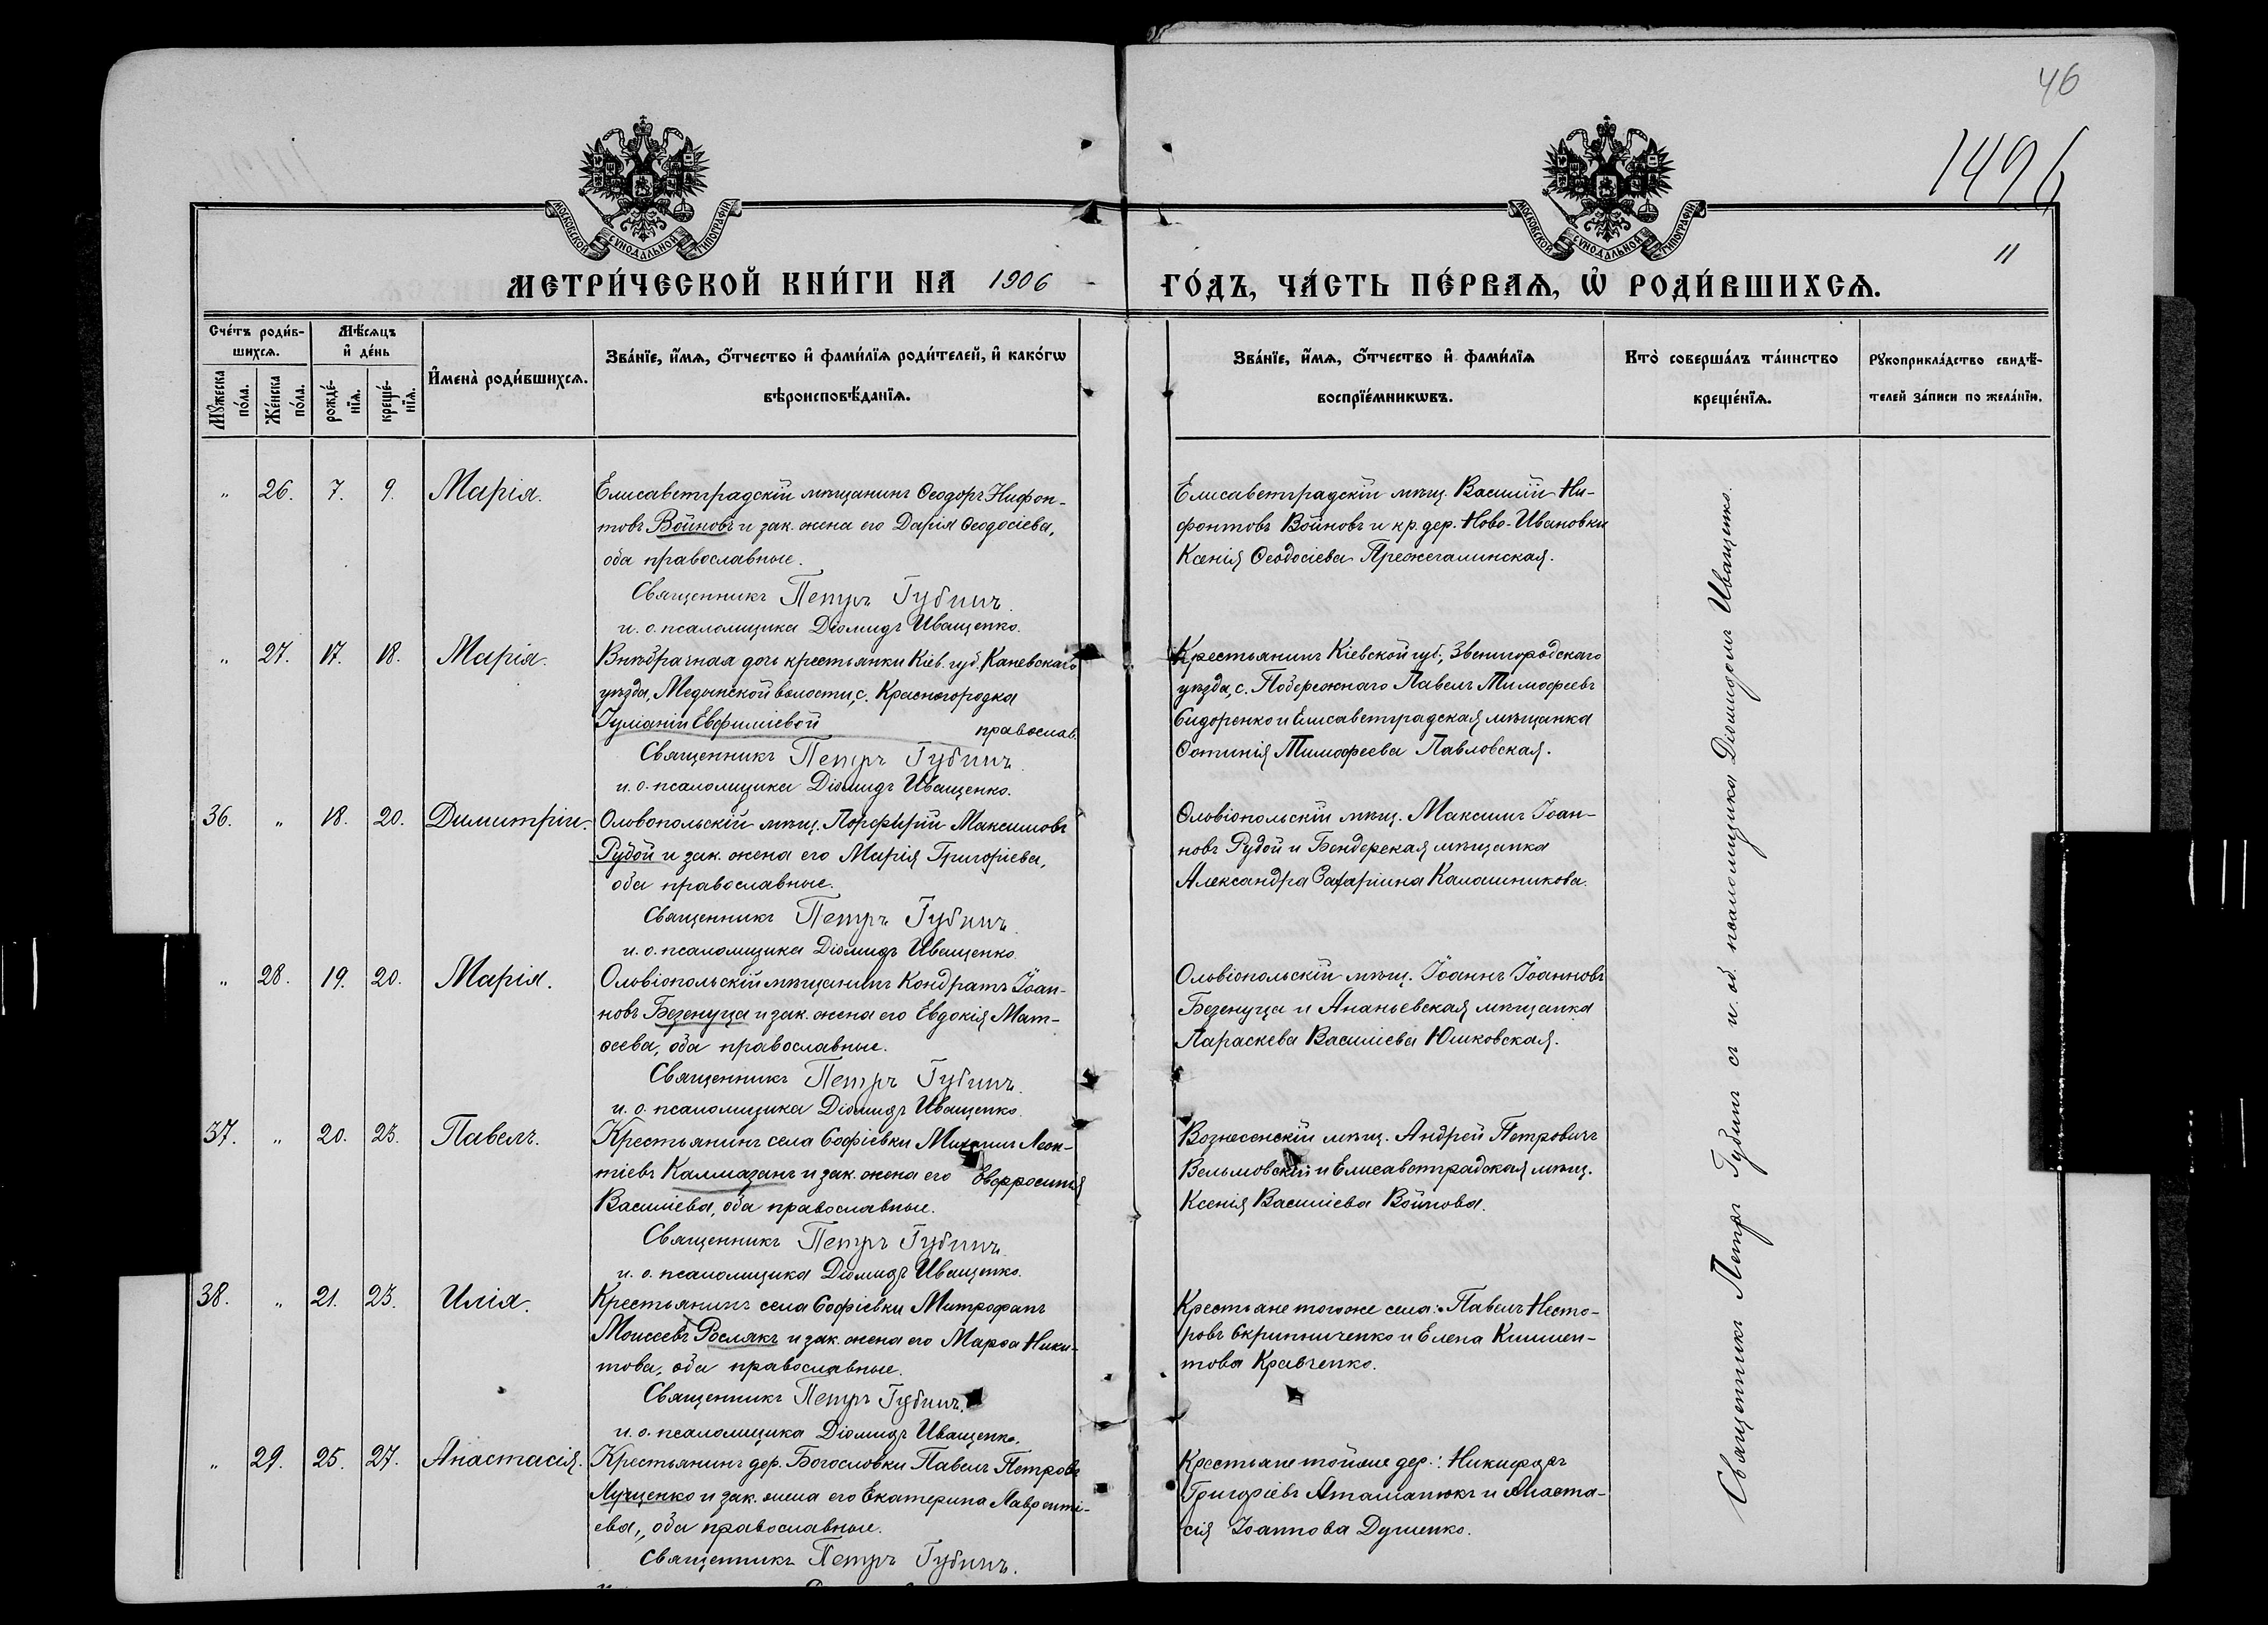 46
1496
11
МОСКОВСКОЙ СѴНОДАЛЬНОЙ ТИПОГРАФІИ
МОСКОВСКОЙ СѴНОДАЛЬНОЙ ТИПОГРАФІИ
МЕТРИ́ЧЕСКОЙ КНИ́ГИ НА 1906
ГО́ДЪ, ЧА́СТЬ ПЕ́РВАѦ, Ѡ҆ РОДИ́ВШИХСѦ.
Сче́тъ роди́в-
шихсѧ.
Мꙋ́жеска по́ла.
Же́нска по́ла.
Мѣ́сѧцъ
и҆ де́нь
рожде́-
нїѧ.
креще́-
нїѧ.
И҆мена̀ роди́вшихсѧ.
Зва́нїе, и҆́мѧ, ѻ҆́тчество и҆ фами́лїѧ роди́телей, и҆ како́гѡ
вѣроисповѣ́данїѧ.
Зва́нїе, и҆́мѧ, ѻ҆́тчество и҆ фами́лїѧ
воспрїе́мникѡвъ.
Кто̀ соверша́лъ та́инство
креще́нїѧ.
Рꙋкоприкла́дство свидѣ́-
телей за́писи по жела́нїю.
" 26. 7. 9. Марія.
Елисаветградскій мѣщанинъ Ѳеодоръ Нифон-
товъ Войновъ и зак. жена его Дарія Ѳеодосіева,
оба православные.
Священникъ Петръ Губинъ.
и. о. псаломщика Діомидъ Иващенко.
Елисаветградскій мѣщ. Василій Ни-
фонтовъ Войновъ и кр. дер. Ново-Ивановки
Ксенія Ѳеодосіева
" 27. 17. 18. Марія.
Внѣбрачная дочь крестьянки Кіев. губ. Каневскаго
уѣзда, Медвинской волости, с. Красногородка
Евфиміевой православ.
Священникъ Петръ Губинъ.
и. о. псаломщика Діомидъ Иващенко.
Крестьянинъ Кіевской губ., Звенигородскаго
уѣзда, с. Побережнаго Павелъ Тимоѳеевъ
Сидоренко и Елисаветградская мѣщанка
Фотинія Тимоѳеева Павловская.
36. " 18. 20. Димитрій.
Ольвіопольскій мѣщ. Порфирій Максимовъ
Рудой и зак. жена его Марія Григоріева,
оба православные.
Священникъ Петръ Губинъ.
и. о. псаломщика Діомидъ Иващенко.
Ольвіопольскій мѣщ. Максимъ Іоан-
новъ Рудой и Бендерская мѣщанка
Александра Захаріина Калашникова.
" 28. 19. 20. Марія.
Ольвіопольскій мѣщанинъ Кондратъ Іоан-
новъ Безенуца и зак. жена его Евдокія Мат-
ѳеева, оба православные.
Священникъ Петръ Губинъ.
и. о. псаломщика Діомидъ Иващенко.
Ольвіопольскій мѣщ. Іоаннъ Іоанновъ
Безенуца и Ананьевская мѣщанка
Параскева Василіева Юшковская.
37. " 20. 23. Павелъ.
Крестьянинъ села Софіевки Михаилъ Леон-
тіевъ Калмазанъ и зак. жена его Евфросинія
Василіева, оба православные.
Священникъ Петръ Губинъ.
и. о. псаломщика Діомидъ Иващенко.
Вознесенскій мѣщ. Андрей Петровичъ
Вельмовскій и Елисаветградская мѣщ.
Ксенія Василіева Войнова.
38. " 21. 23. Илія.
Крестьянинъ села Софіевки Митрофанъ
Моисеевъ Рослякъ и зак. жена его Марѳа Ники-
това, оба православные.
Священникъ Петръ Губинъ.
и. о. псаломщика Діомидъ Иващенко.
Крестьяне того же села: Павелъ Несто-
ровъ Скрипниченко и Елена Климен-
това Кравченко.
" 29. 25. 27. Анастасія.
Крестьянинъ дер. Богословки Павелъ Петровъ
Луценко и зак. жена его Екатерина Лаврентi-
ева, оба православные.
Священникъ Петръ Губинъ.
Крестьяне той же дер.: Никифоръ
Григоріевъ Аталанюкъ и Анаста-
сія Іоаннова Душенко.
Священникъ Петръ Губинъ съ и. об. псаломщика Діомидомъ Иващенко.